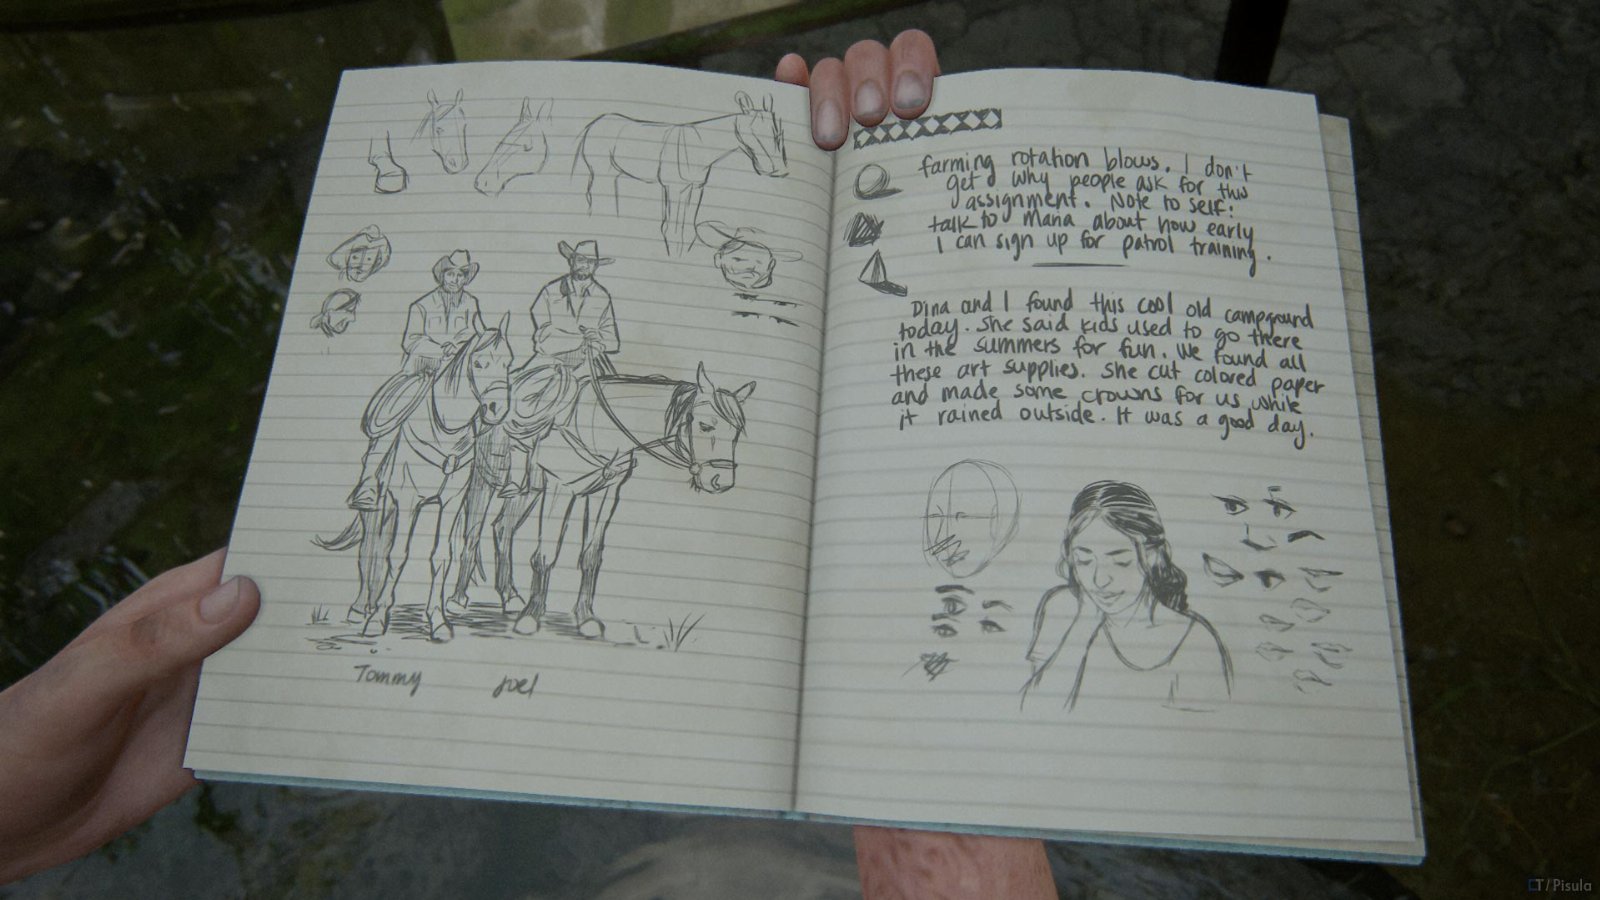 farming rotation blows. I don't
get why people ask for this
assignment. Note to self:
talk to Maria about how early
I can sign up for patrol training.
Dina and I found this cool old campground
today. She said kids used to go there
in the summers for fun. We found all
these art supplies. She cut colored paper
and made some crowns for us while
it rained outside. It was a good day.
Tommy
Joel
T/Pisula